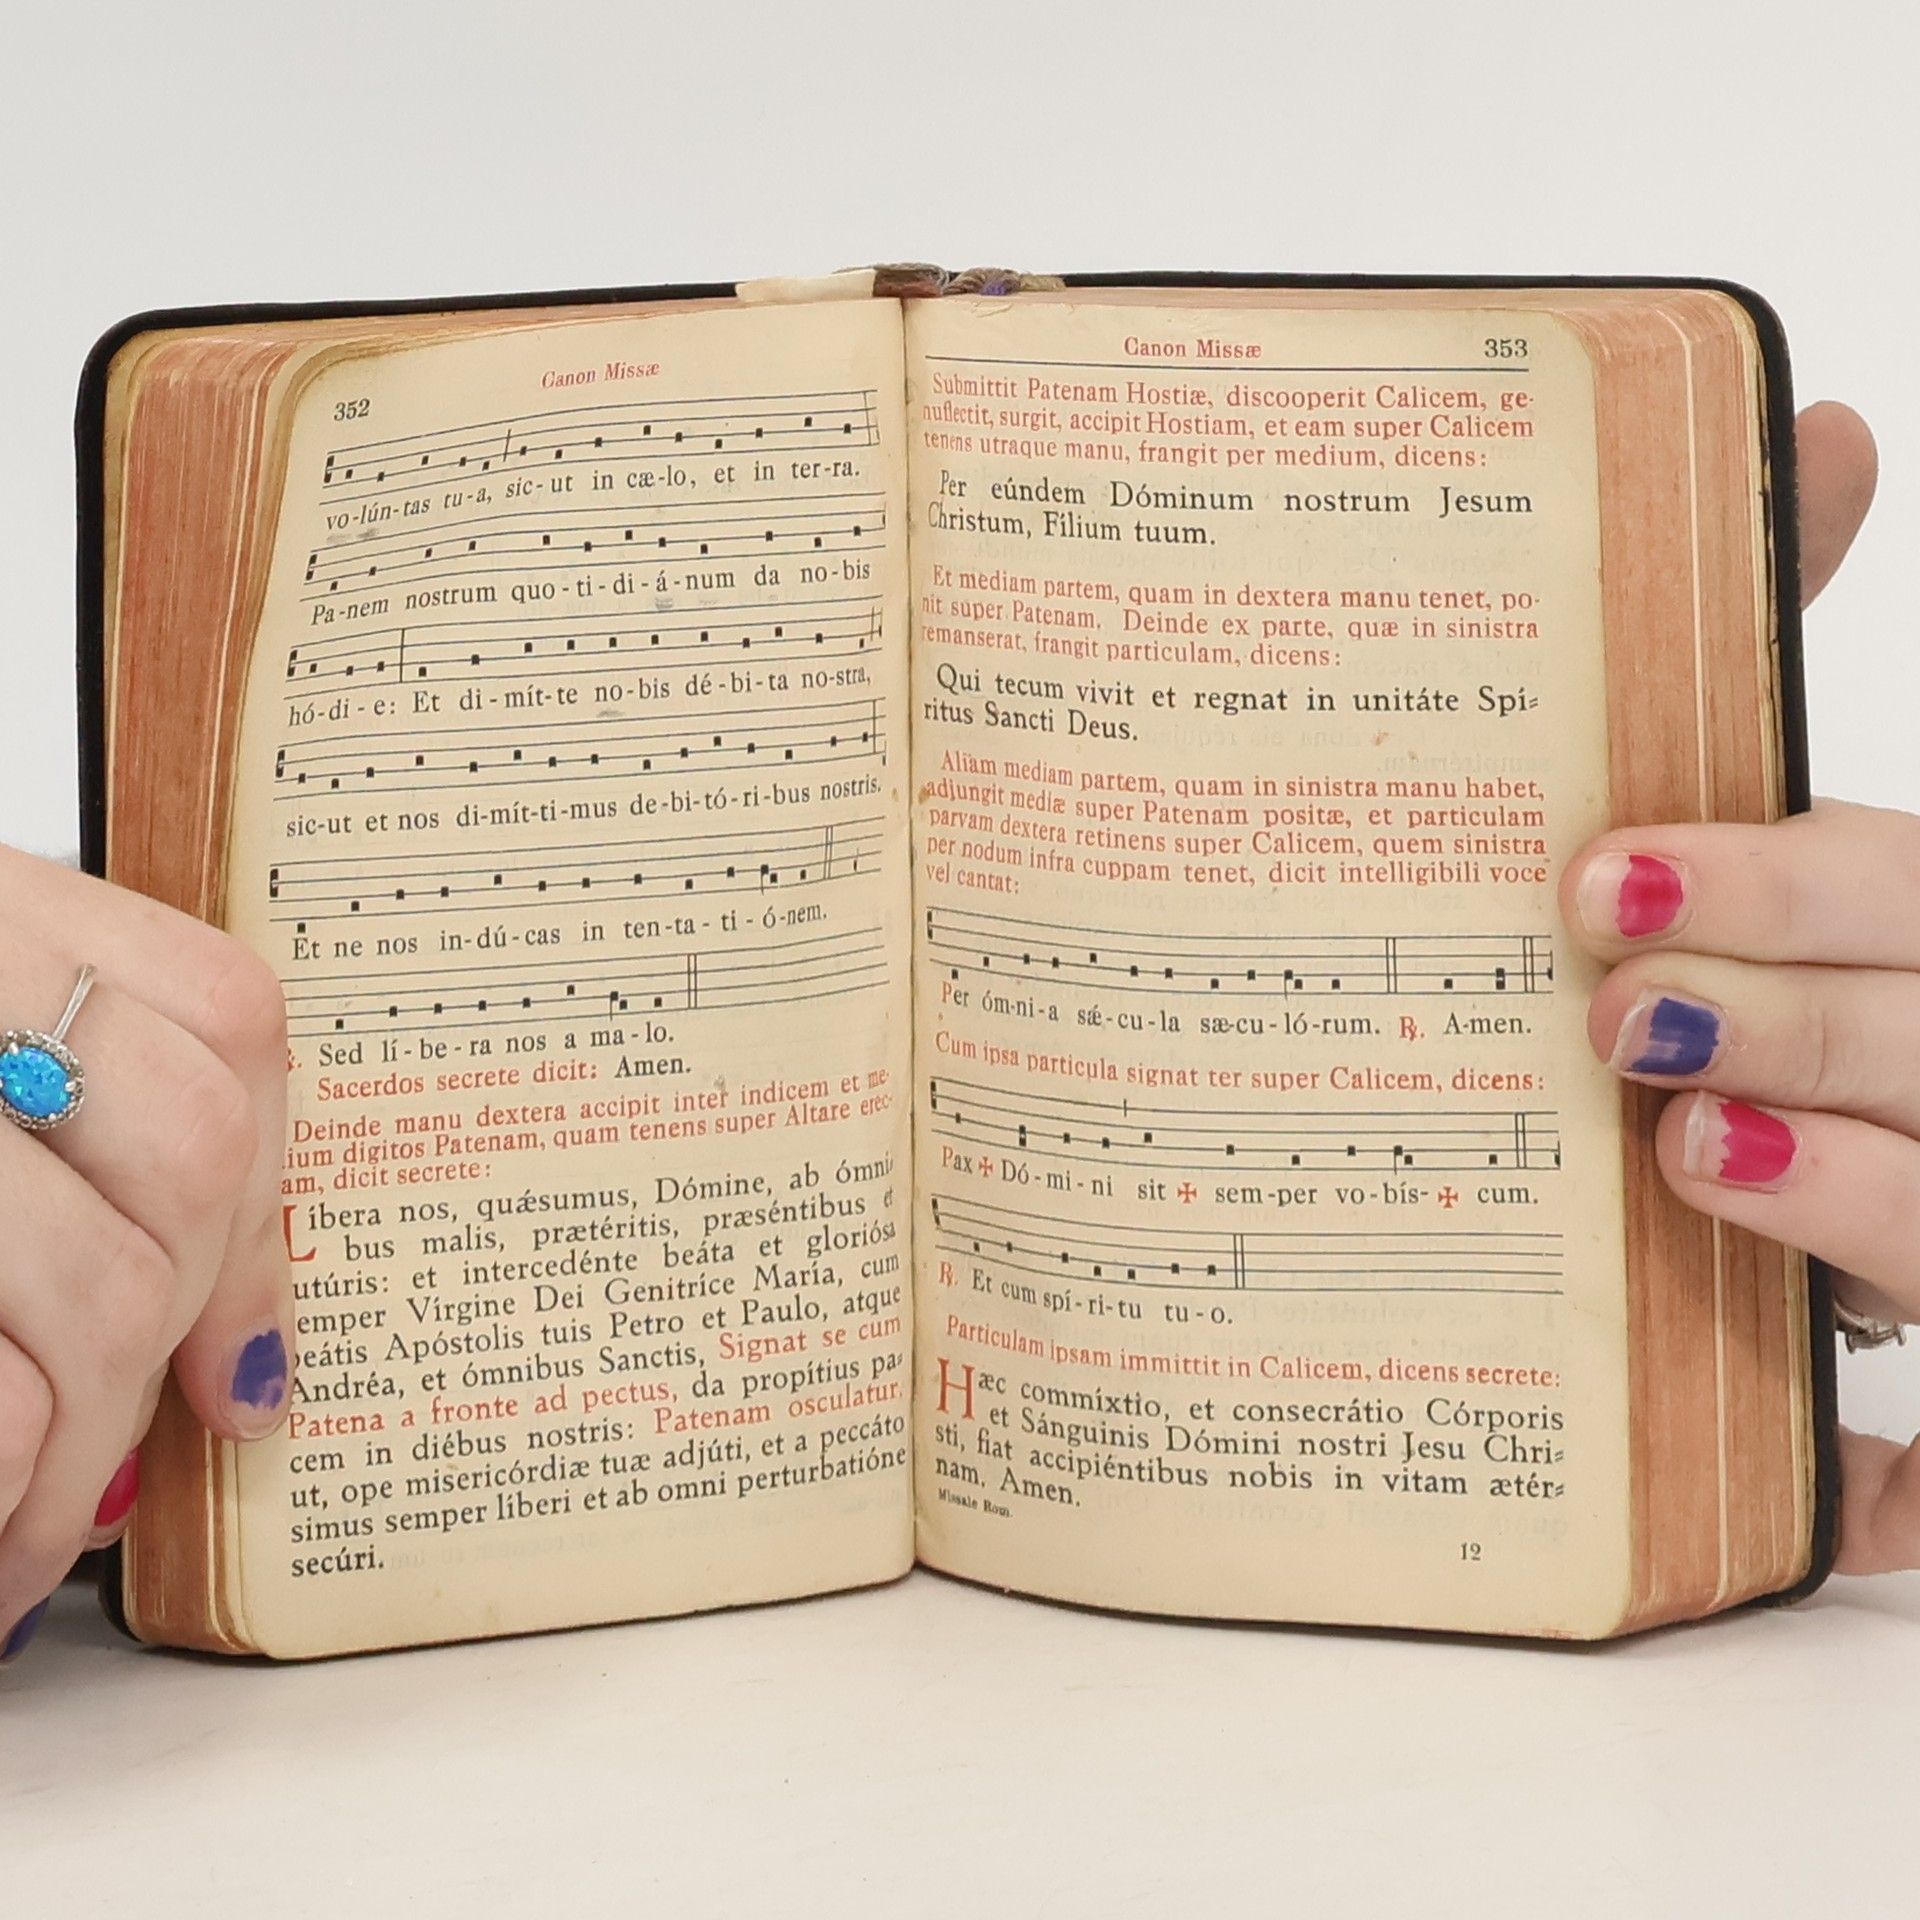 352
Canon Missæ
vo-lún-tas tu-a, sic-ut in cæ-lo, et in ter-ra.
Pa-nem nostrum quo-ti-di-á-num da no-bis
hó-di-e: Et di-mít-te no-bis dé-bi-ta no-stra,
sic-ut et nos di-mít-ti-mus de-bi-tó-ri-bus nostris.
Et ne nos in-dú-cas in ten-ta-ti-ó-nem.
℟. Sed lí-be-ra nos a ma-lo.
Sacerdos secrete dicit: Amen.
Deinde manu dextera accipit inter indicem et me-
ium digitos Patenam, quam tenens super Altare erec-
am, dicit secrete:
Líbera nos, quǽsumus, Dómine, ab ómni
bus malis, prætéritis, præséntibus et
utúris: et intercedénte beáta et gloriósa
emper Vírgine Dei Genitríce María, cum
beátis Apóstolis tuis Petro et Paulo, atque
Andréa, et ómnibus Sanctis, Signat se cum
Patena a fronte ad pectus, da propítius pa-
cem in diébus nostris: Patenam osculatur,
ut, ope misericórdiæ tuæ adjúti, et a peccáto
simus semper líberi et ab omni perturbatióne
secúri.
Canon Missæ 353
Submittit Patenam Hostiæ, discooperit Calicem, ge-
nuflectit, surgit, accipit Hostiam, et eam super Calicem
tenens utraque manu, frangit per medium, dicens:
Per eúndem Dóminum nostrum Jesum
Christum, Fílium tuum.
Et mediam partem, quam in dextera manu tenet, po-
nit super Patenam. Deinde ex parte, quæ in sinistra
remanserat, frangit particulam, dicens:
Qui tecum vivit et regnat in unitáte Spí-
ritus Sancti Deus.
Aliam mediam partem, quam in sinistra manu habet,
adjungit mediæ super Patenam positæ, et particulam
parvam dextera retinens super Calicem, quem sinistra
per nodum infra cuppam tenet, dicit intelligibili voce
vel cantat:
Per óm-ni-a sǽ-cu-la sæ-cu-ló-rum. ℟. A-men.
Cum ipsa particula signat ter super Calicem, dicens:
Pax ✠ Dó-mi-ni sit ✠ sem-per vo-bís- ✠ cum.
℟. Et cum spí-ri-tu tu-o.
Particulam ipsam immittit in Calicem, dicens secrete:
Hæc commíxtio, et consecrátio Córporis
et Sánguinis Dómini nostri Jesu Chri-
sti, fiat accipiéntibus nobis in vitam ætér-
nam. Amen.
Missale Rom.
12